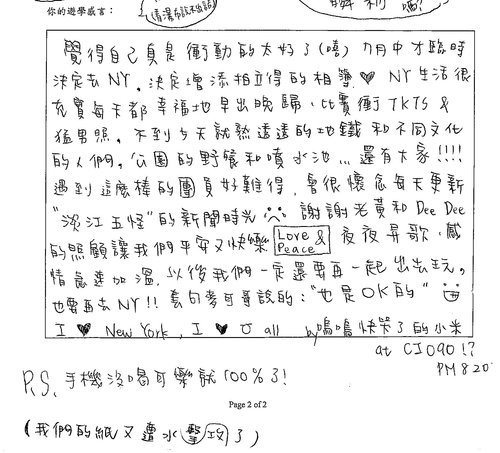 你的遊學感言：
覺得自己真是衝動的太好了(嘻) 7月中才臨時
決定去NY，決定增添相立得的相簿♥ NY生活很
充實每天都幸福地早出晚歸，比賽衝TKTS &
猛男照，不到5天就熟透透的地鐵和不同文化
的人們，公園的野餐和噴水池...還有大家!!!!
遇到這麼棒的團員好難得，會很懷念每天更新
"淡江五怪"的新聞時光 謝謝老黃和Dee Dee
的照顧讓我們平安又快樂 Love & Peace 夜夜昇歌，感
情急速加溫，以後我們一定還要再一起出去玩。
也要再去NY!! 套句麥可哥說的："也是OK的"
I ♥ New York, I ♥ U all by嗚嗚快哭了的小米
at CI090!?
PM 820
P.S. 手機沒喝可樂就100%了!
Page 2 of 2
(我們的紙又遭水攻了)